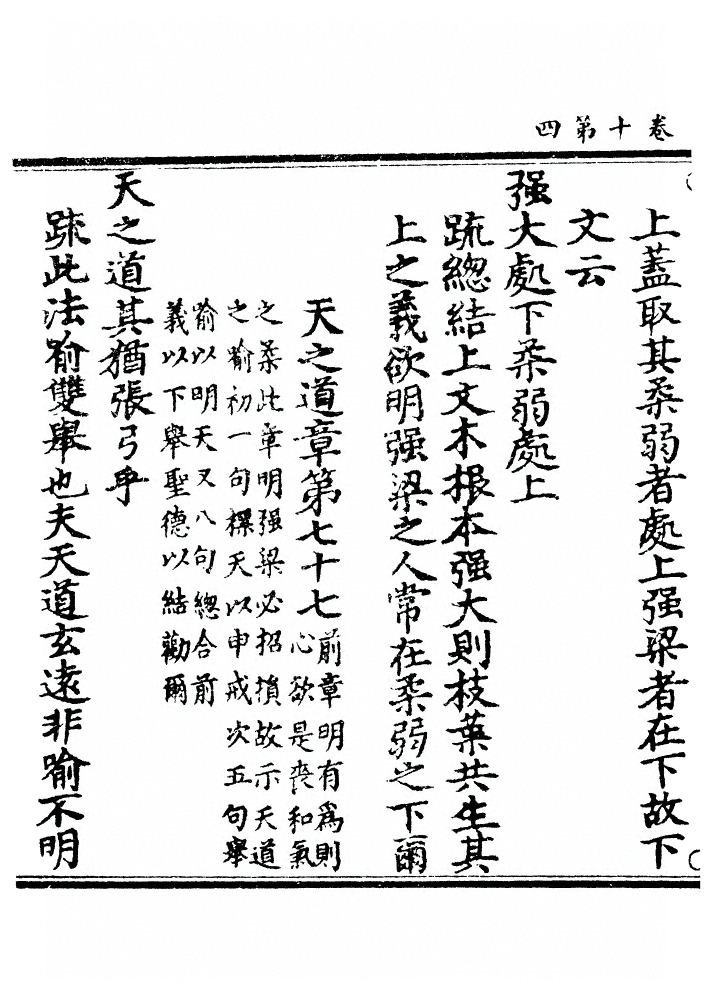 卷十第四
上蓋取其柔弱者處上强梁者在下故下
文云
强大處下柔弱處上
疏總結上文木根本强大則枝葉共生其
上之義欲明强梁之人常在柔弱之下爾
天之道章第七十七
前章明有爲則
心欲是喪和氣
之柔此章明强梁必招損故示天道
之喻初一句標天以申戒次五句舉
喻以明天又八句總合前
義以下舉聖德以結勸爾
天之道其猶張弓乎
疏此法喻雙舉也夫天道玄遠非喻不明